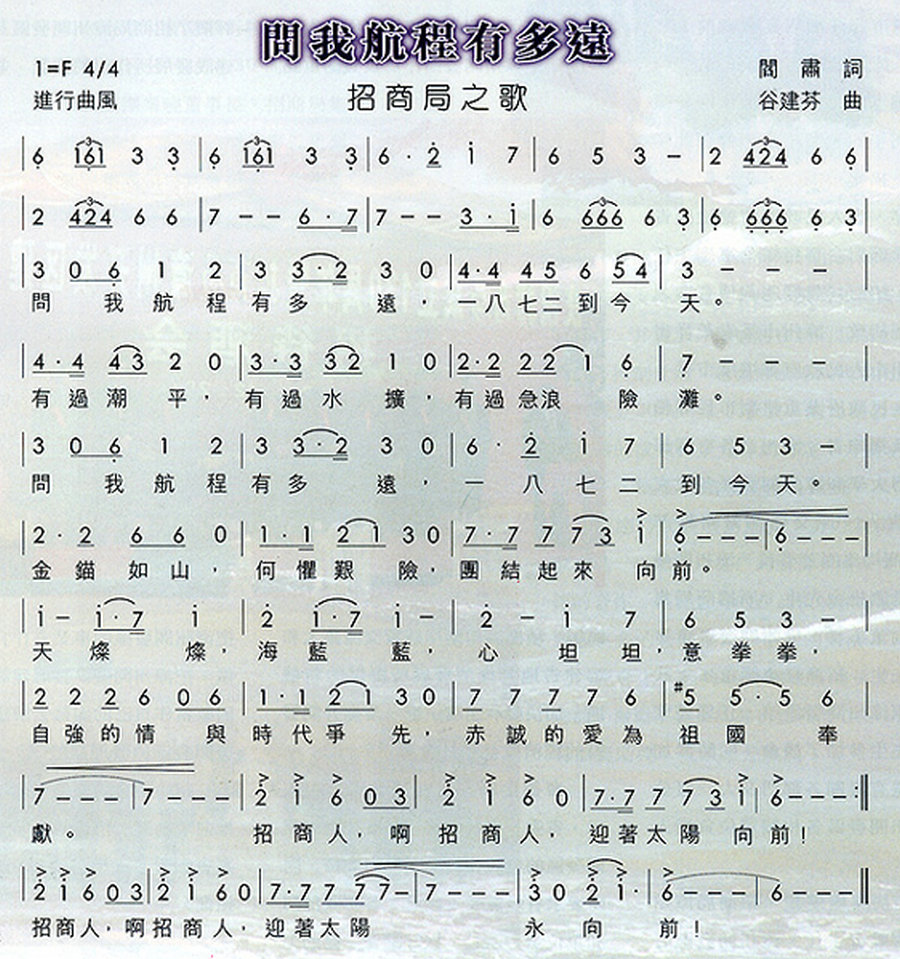 問我航程有多遠
1=F 4/4
閻肅 詞
進行曲風
招商局之歌
谷建芬 曲
6 161 3 3 | 6 161 3 3 | 6· 2 1 7 | 6 5 3 – | 2 424 6 6 |
2 424 6 6 | 7 – – 6·7 | 7 – – 3·1 | 6 666 6 3 | 6 666 6 3 |
3 06 1 2 | 3 33·2 3 0 | 4·4 45 6 54 | 3 – – – |
問 我航程有多 遠，一八七二到今 天。
4·4 43 2 0 | 3·3 32 4 0 | 2·2 22 1 6 | 7 – – – |
有過潮 平，有過水 擴，有過急浪 險 灘。
3 06 1 2 | 3 33·2 3 0 | 6· 2 1 7 | 6 5 3 – |
問 我航程有多 遠，一 八七二 到今天。
2·2 66 0 | 1·1 21 30 | 7·7 77 73 1 | 6 – – – | 6 – – – |
金錨如山，何懼艱 險，團結起來 向前。
1 – 1·7 1 | 2 1·7 1 | 2 – 1 7 | 6 5 3 – |
天 燦 燦，海藍 藍，心 坦 坦，意拳拳，
2 22 2606 | 1·1 21 30 | 7 77 77 6 | #5 5·5 6 |
自強的情 與時代爭 先，赤誠的愛為 祖國 奉
7 – – – | 7 – – – | 2 1 6 03 | 2 1 60 | 7·7 7 73 1 | 6 – – – :||
獻。 招商人，啊招商人，迎著太陽 向前！
2 1 6 03 | 2 1 60 | 7·7 77 7 – | 7 – – – | 30 2 1· | 6 – – – | 6 – – – ||
招商人，啊招商人，迎著太陽 永 向 前！